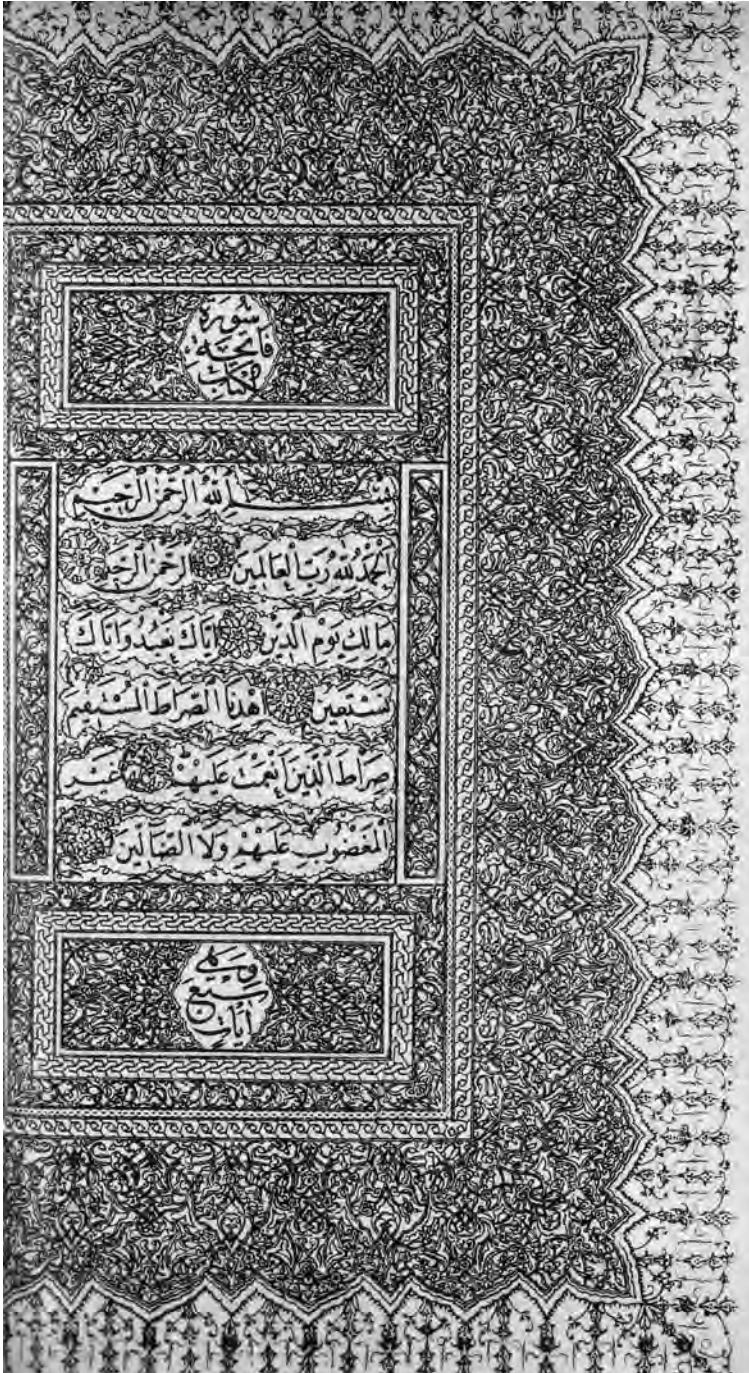 سُورَة
فَاتِحَة
الكِتَاب
بِسْمِ اللّٰهِ الرَّحْمٰنِ الرَّحِيمِ
اَلْحَمْدُ لِلّٰهِ رَبِّ الْعَالَمِينَ الرَّحْمٰنِ الرَّحِيمِ
مَالِكِ يَوْمِ الدِّينِ اِيَّاكَ نَعْبُدُ وَاِيَّاكَ
نَسْتَعِينُ اِهْدِنَا الصِّرَاطَ الْمُسْتَقِيمَ
صِرَاطَ الَّذِينَ اَنْعَمْتَ عَلَيْهِمْ غَيْرِ
الْمَغْضُوبِ عَلَيْهِمْ وَلَا الضَّالِّينَ
وَهِيَ
سَبْعُ
اٰيَاتٍ